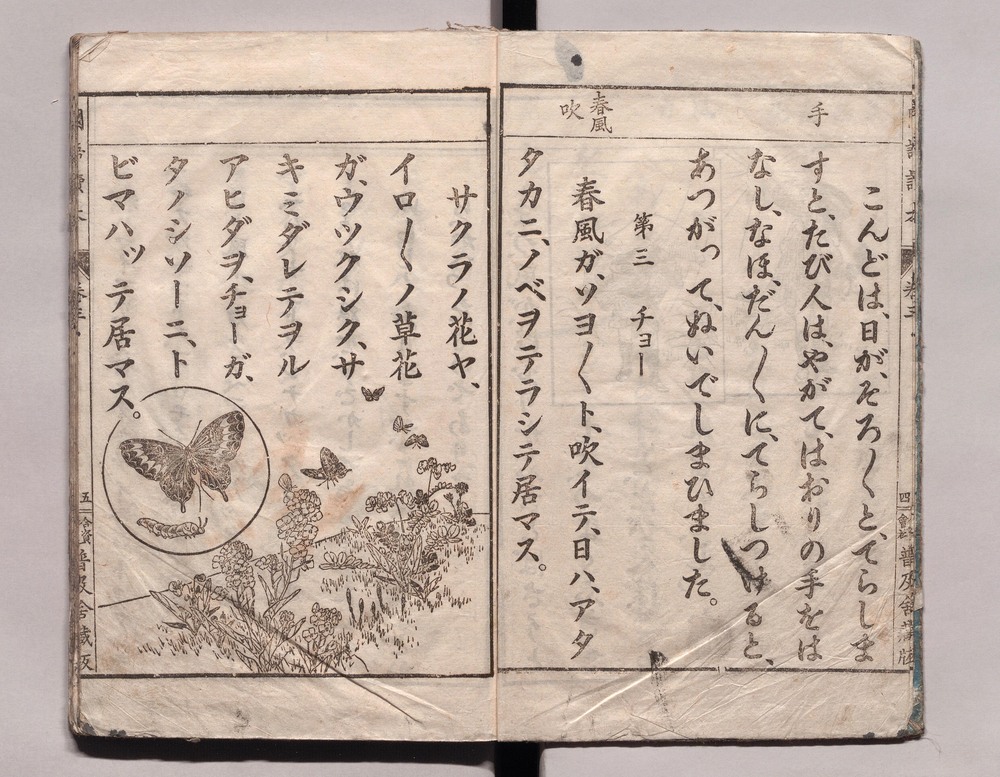 手
こんどは、日が、そろ〳〵と、てらしま
すと、たび人は、やがて、はおりの手をは
なし、なほ、だん〳〵に、てらしつけると、
あつがって、ぬいでしまひました。
第三 チョー
春風
吹
春風ガ、ソヨ〳〵ト、吹イテ、日ハ、アタ
タカニ、ノベヲテラシテ居マス。
四
サクラノ花ヤ、
イロ〳〵ノ草花
ガ、ウツクシク、サ
キミダレテヲル
アヒダヲ、チョーガ、
タノシソーニ、ト
ビマハッテ居マス。
五
普及舍藏版